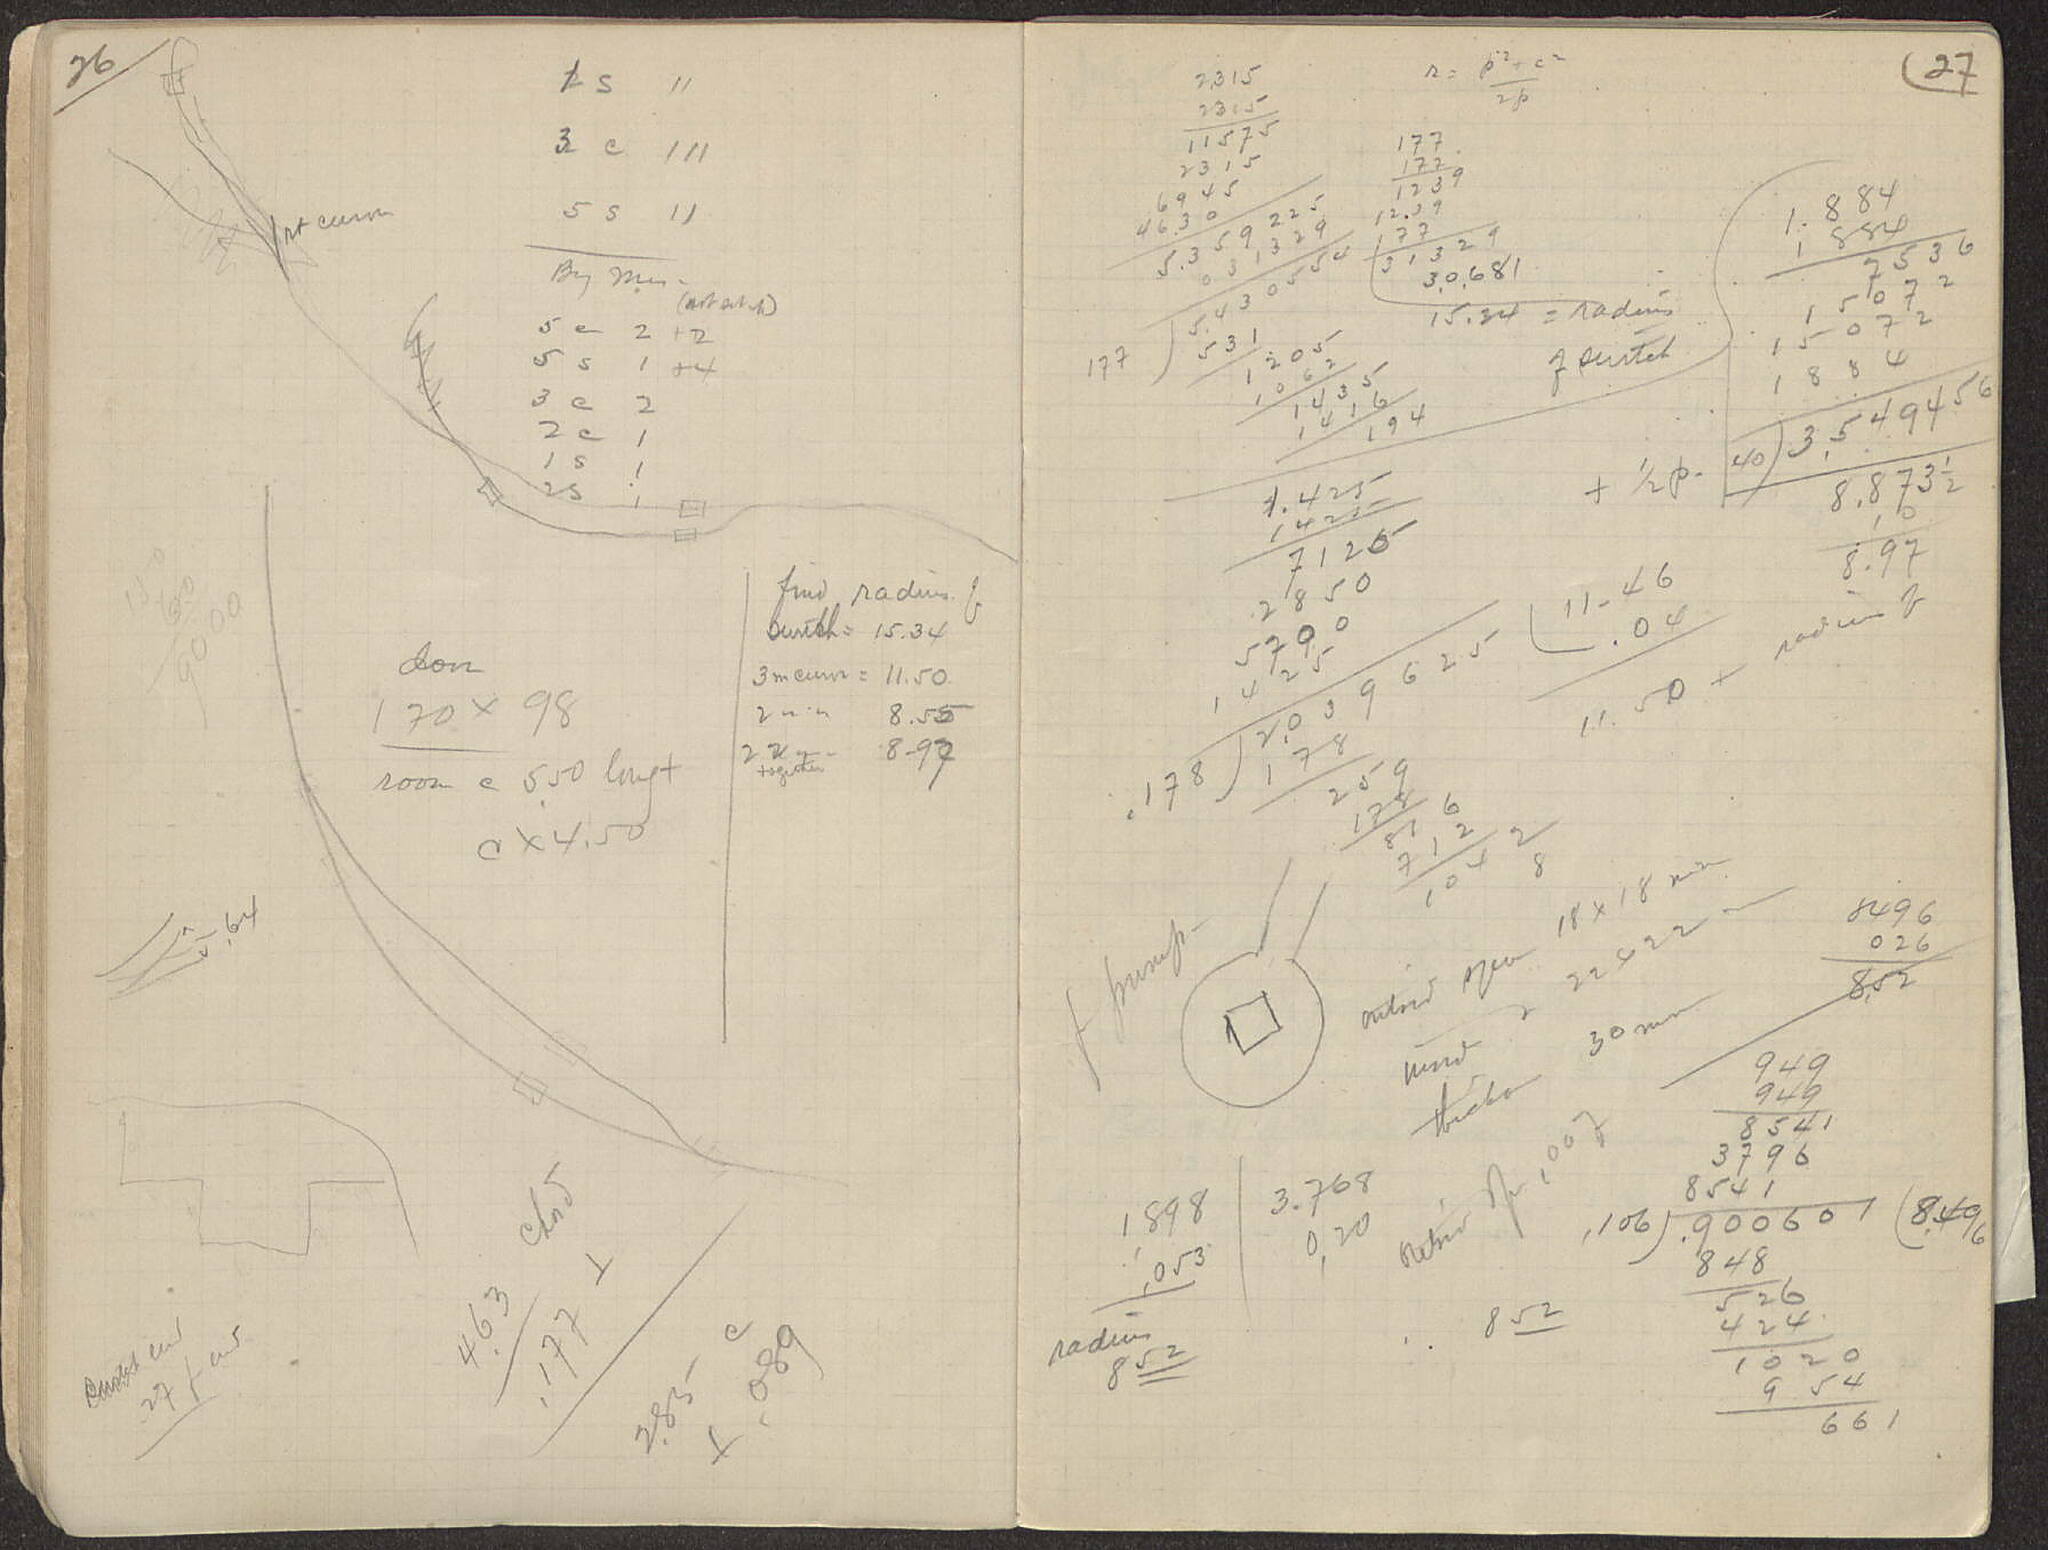 26
2 s 11
3 c 111
5 s 11
1st curve
By Mr.
5 c 2 +2
5 s 1 +4
3 c 2
2 c 1
1 s 1
2 s 1
150
60
9000
door
170 x 98
room c 5.50 long +
c x 4.50
find radius of
Switch = 15.34
3 m curve = 11.50
2 " " 8.55
2 2 " "
together
8.97
5.64
chord
4.63
.177
2.85 c
.089
Switch end
27
27
r = p²+c²
2p
2315
2315
11575
2315
6945
4630
5.359225
031329
5.430554
177
531
1205
1062
1435
1416
194
177
177
1239
1239
177
31329
30.681
15.34 = radius
of switch
1.884
1 884
7536
15072
15072
1884
40 ) 3,549456
8.873 1/2
10
8.97
+ 1/2 p.
radius of
1.425
1425
7125
2850
5700
1425
.178 ) 2,039625
178
259
178
816
712
1042
8
11.46
.04
11.50 +
pump
18 x 18 mm
22 x 22
30 mm
8496
026
8.52
949
949
8541
3796
8541
.106 ) .900601 ( 8.496
848
526
424
1020
954
661
1,898
.053
radius
8 52
3.768
0,20
8 52